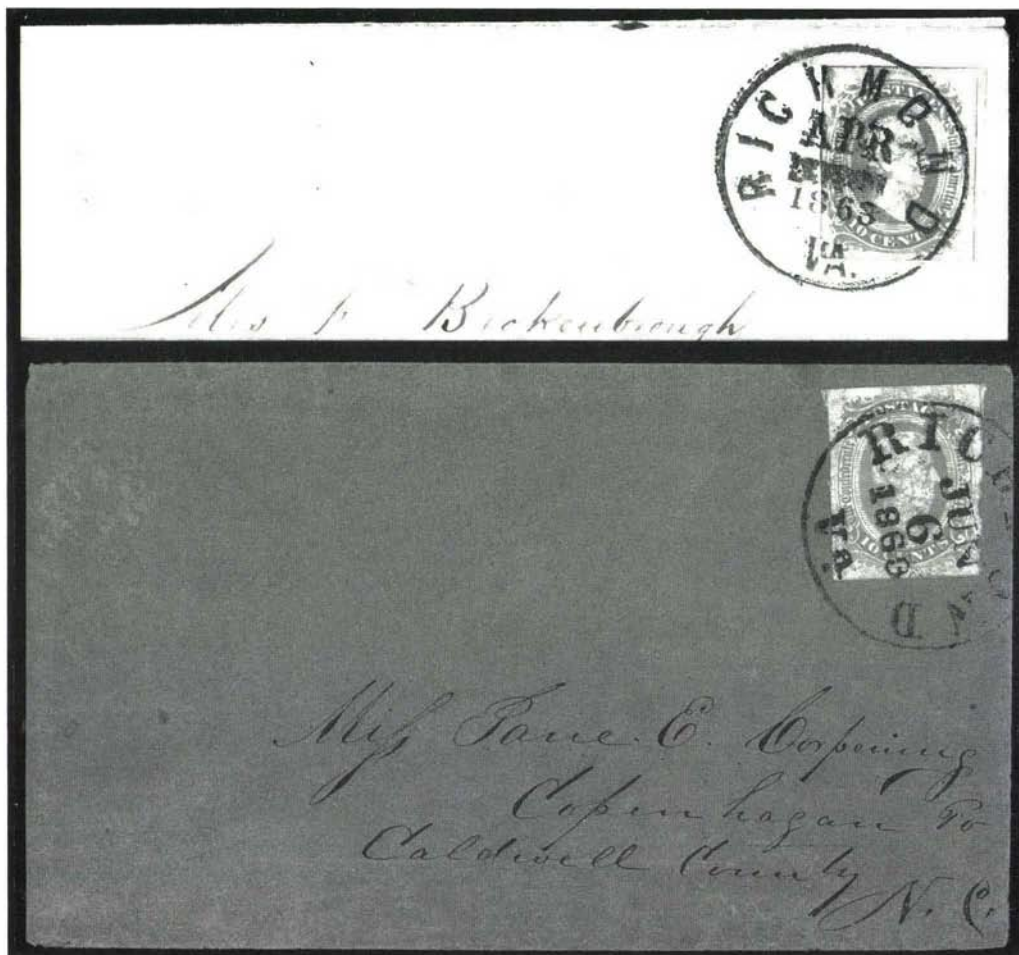 RICHMOND
APR
1863
VA.
POSTAGE
10 CENTS
Mrs F Brockenbrough
RICHMOND
JUN
6
1863
Va
POSTAGE
Confederate
10 CENTS
Miss Jane E. Corpening
Copenhagan Po
Caldwell County
N. C.